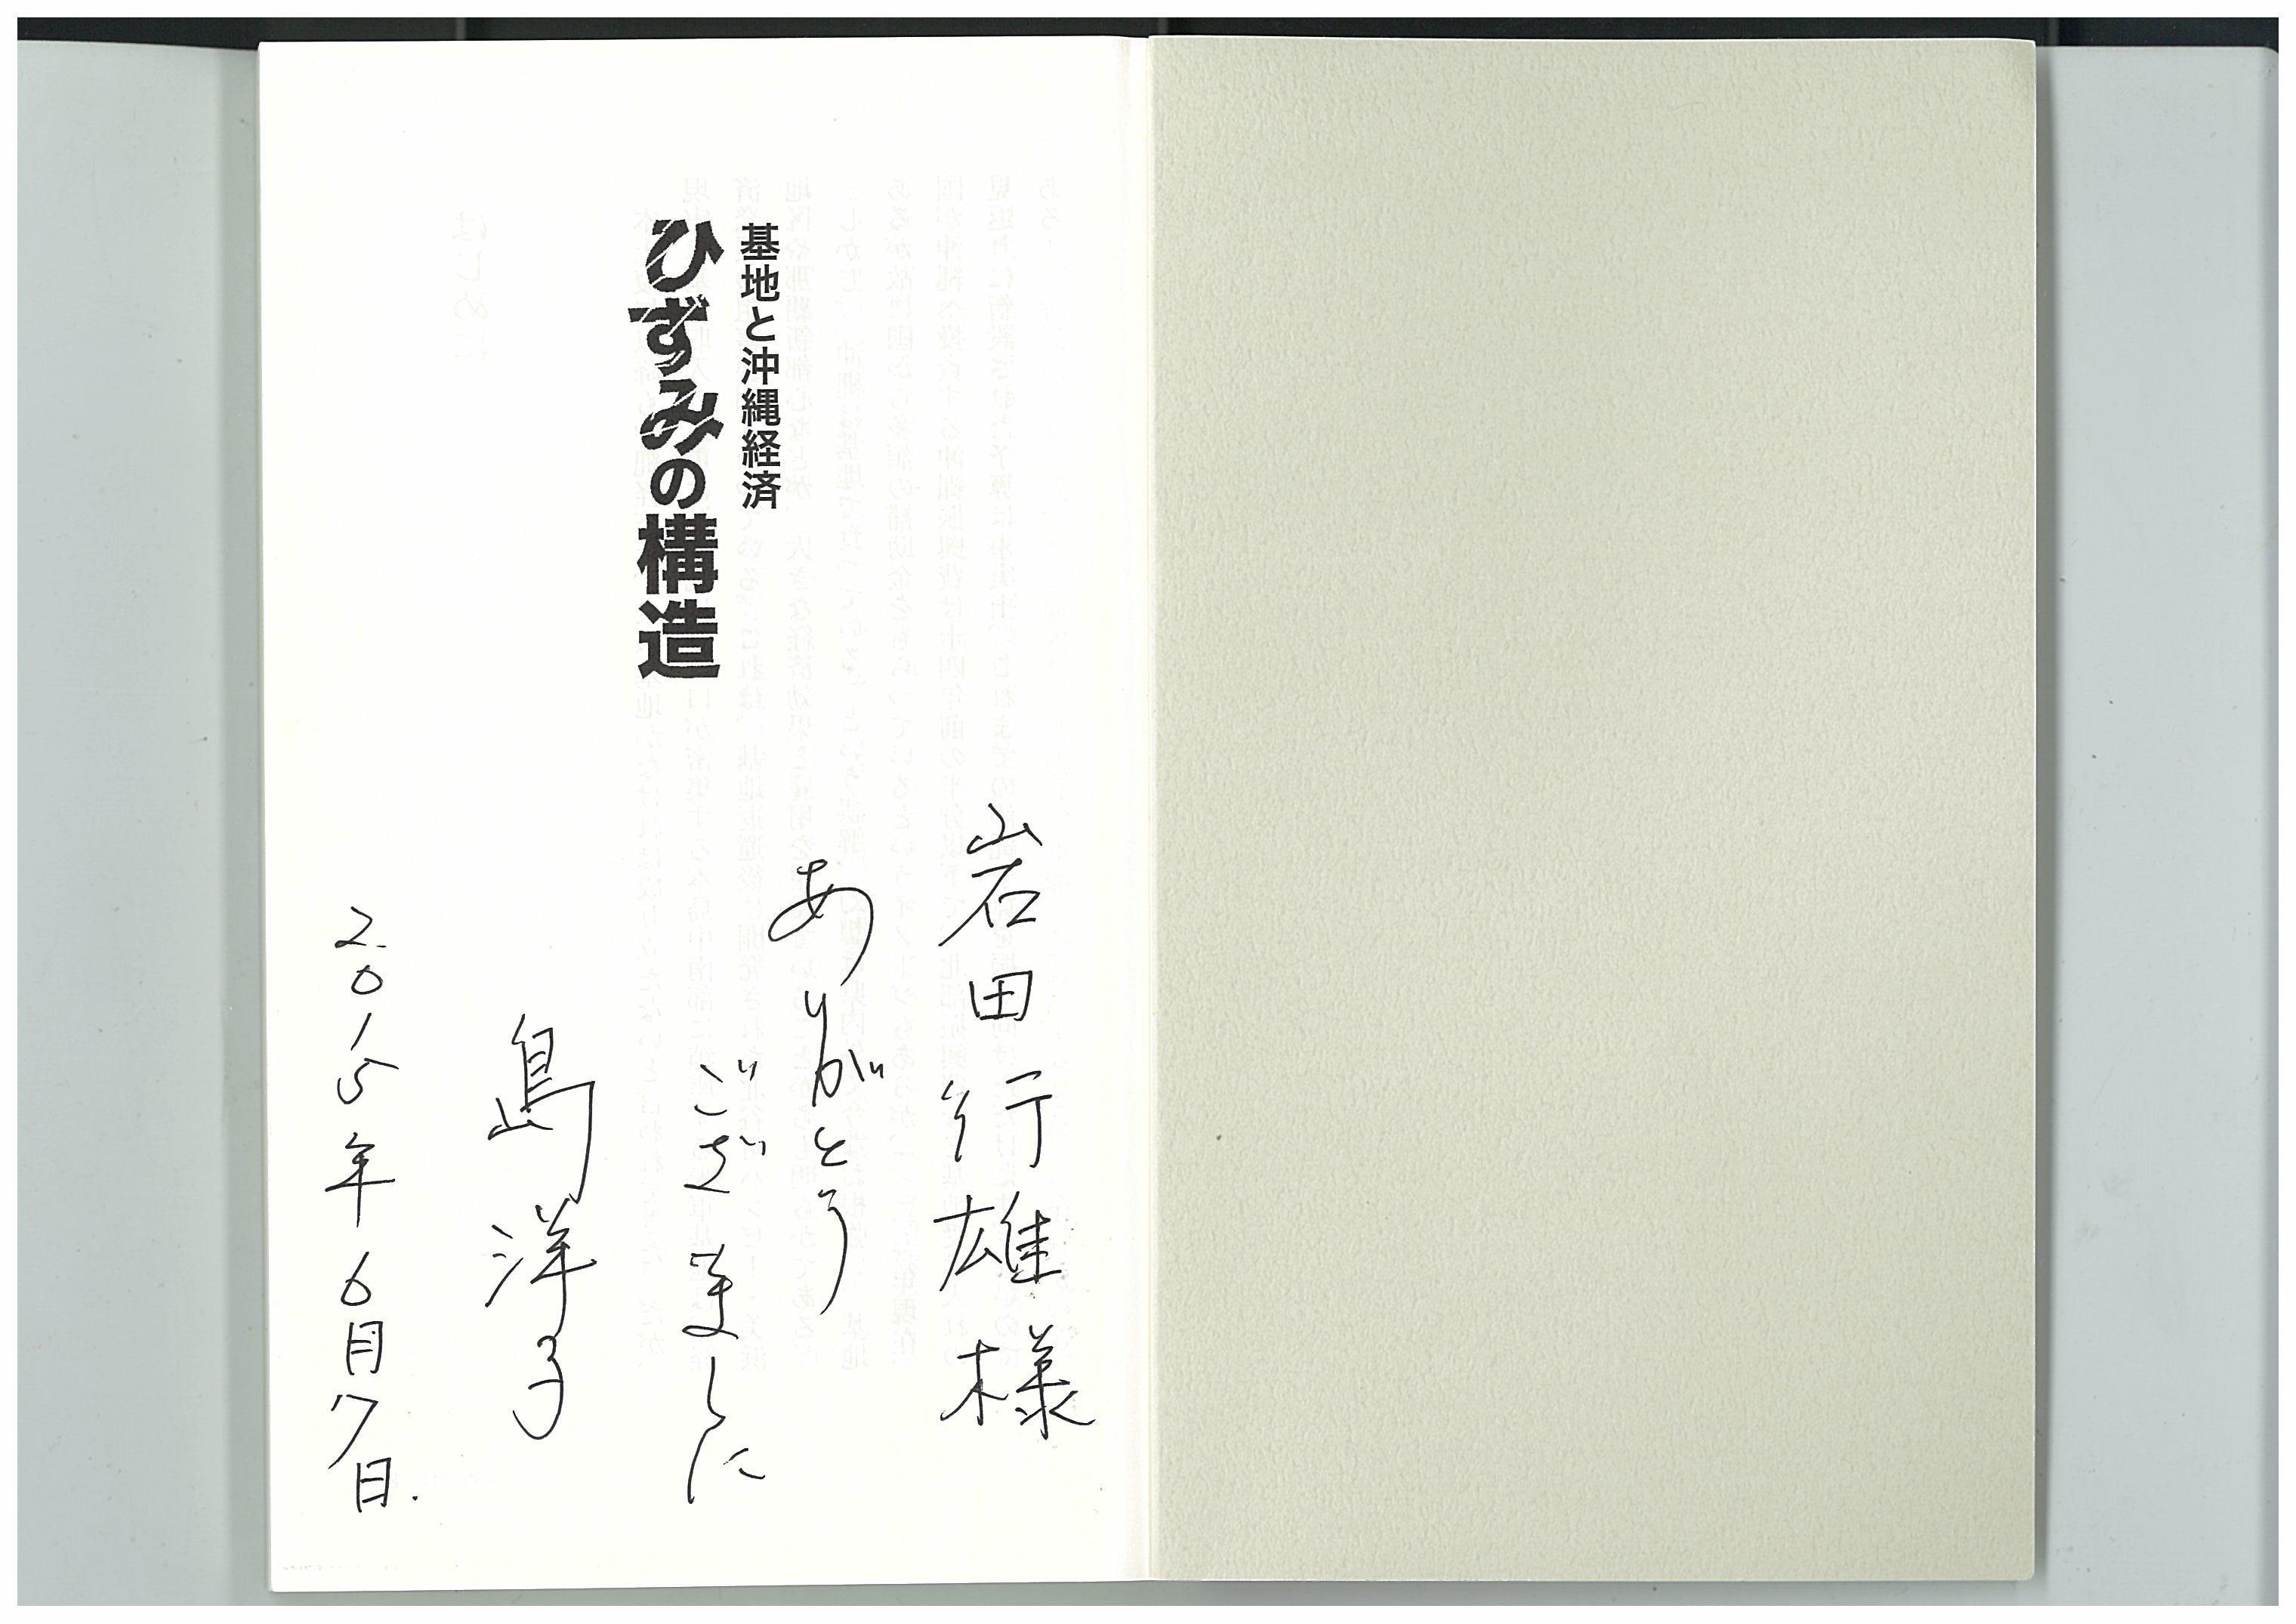 基地と沖縄経済
ひずみの構造
岩田行雄様
ありがとう
ございました
島洋子
2015年6月7日.